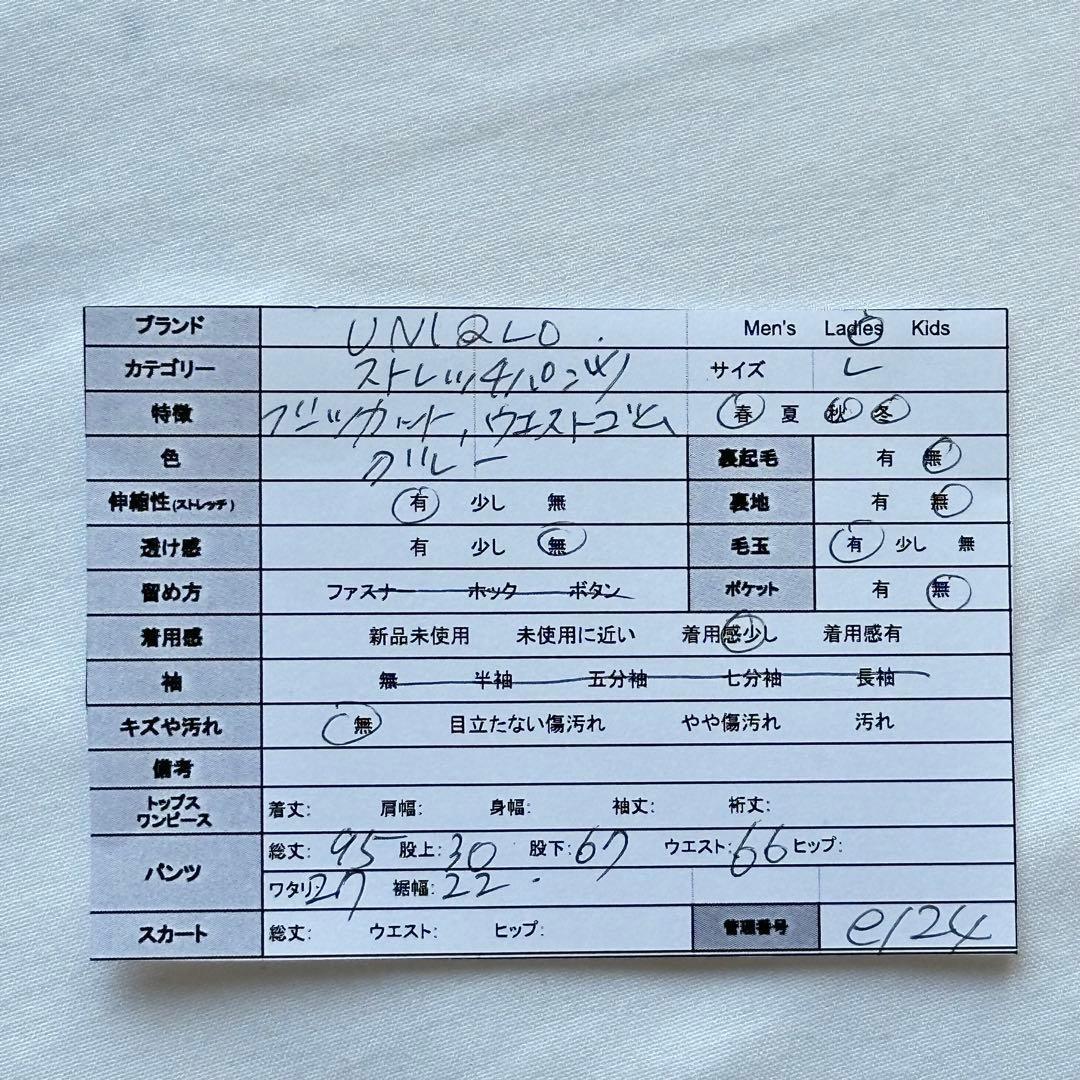 ブランド UNIQLO. Men's Ladies Kids
カテゴリー ストレッチパンツ サイズ L
特徴 ブーツカット, ウエストゴム 春 夏 秋 冬
色 グレー 裏起毛 有 無
伸縮性(ストレッチ) 有 少し 無 裏地 有 無
透け感 有 少し 無 毛玉 有 少し 無
留め方 ファスナー ホック ボタン ポケット 有 無
着用感 新品未使用 未使用に近い 着用感少し 着用感有
袖 無 半袖 五分袖 七分袖 長袖
キズや汚れ 無 目立たない傷汚れ やや傷汚れ 汚れ
備考
トップス ワンピース 着丈: 肩幅: 身幅: 袖丈: 裄丈:
パンツ 総丈: 95 股上: 30 股下: 67 ウエスト: 66 ヒップ:
ワタリ: 27 裾幅: 22
スカート 総丈: ウエスト: ヒップ: 管理番号 e124